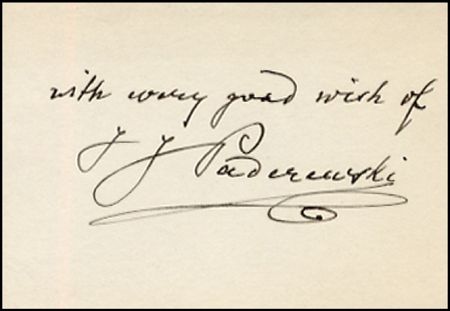 with every good wish of
I J Paderewski